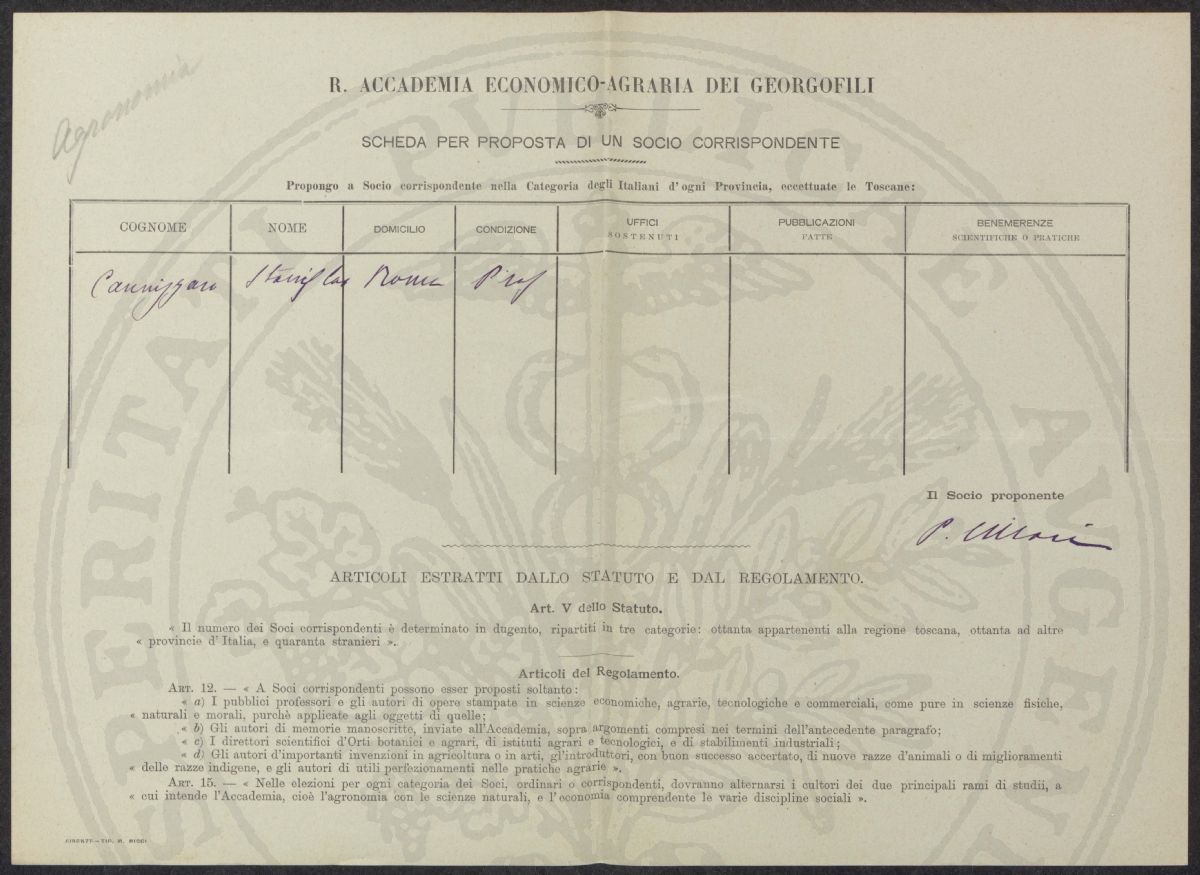 Agronomia
R. ACCADEMIA ECONOMICO-AGRARIA DEI GEORGOFILI
SCHEDA PER PROPOSTA DI UN SOCIO CORRISPONDENTE
Propongo a Socio corrispondente nella Categoria degli Italiani d'ogni Provincia, eccettuate le Toscane:
COGNOME NOME DOMICILIO CONDIZIONE UFFICI SOSTENUTI PUBBLICAZIONI FATTE BENEMERENZE SCIENTIFICHE O PRATICHE
Cannizzaro Stanislao Roma Prof
Il Socio proponente
P.
ARTICOLI ESTRATTI DALLO STATUTO E DAL REGOLAMENTO.
Art. V dello Statuto.
« Il numero dei Soci corrispondenti è determinato in dugento, ripartiti in tre categorie: ottanta appartenenti alla regione toscana, ottanta ad altre
« provincie d'Italia, e quaranta stranieri ».
Articoli del Regolamento.
ART. 12. — « A Soci corrispondenti possono esser proposti soltanto:
« a) I pubblici professori e gli autori di opere stampate in scienze economiche, agrarie, tecnologiche e commerciali, come pure in scienze fisiche,
« naturali e morali, purchè applicate agli oggetti di quelle;
« b) Gli autori di memorie manoscritte, inviate all'Accademia, sopra argomenti compresi nei termini dell'antecedente paragrafo;
« c) I direttori scientifici d'Orti botanici e agrari, di istituti agrari e tecnologici, e di stabilimenti industriali;
« d) Gli autori d'importanti invenzioni in agricoltura o in arti, gl'introduttori, con buon successo accertato, di nuove razze d'animali o di miglioramenti
« delle razze indigene, e gli autori di utili perfezionamenti nelle pratiche agrarie ».
ART. 15. — « Nelle elezioni per ogni categoria dei Soci, ordinari o corrispondenti, dovranno alternarsi i cultori dei due principali rami di studii, a
« cui intende l'Accademia, cioè l'agronomia con le scienze naturali, e l'economia comprendente le varie discipline sociali ».
FIRENZE—TIP. M. RICCI